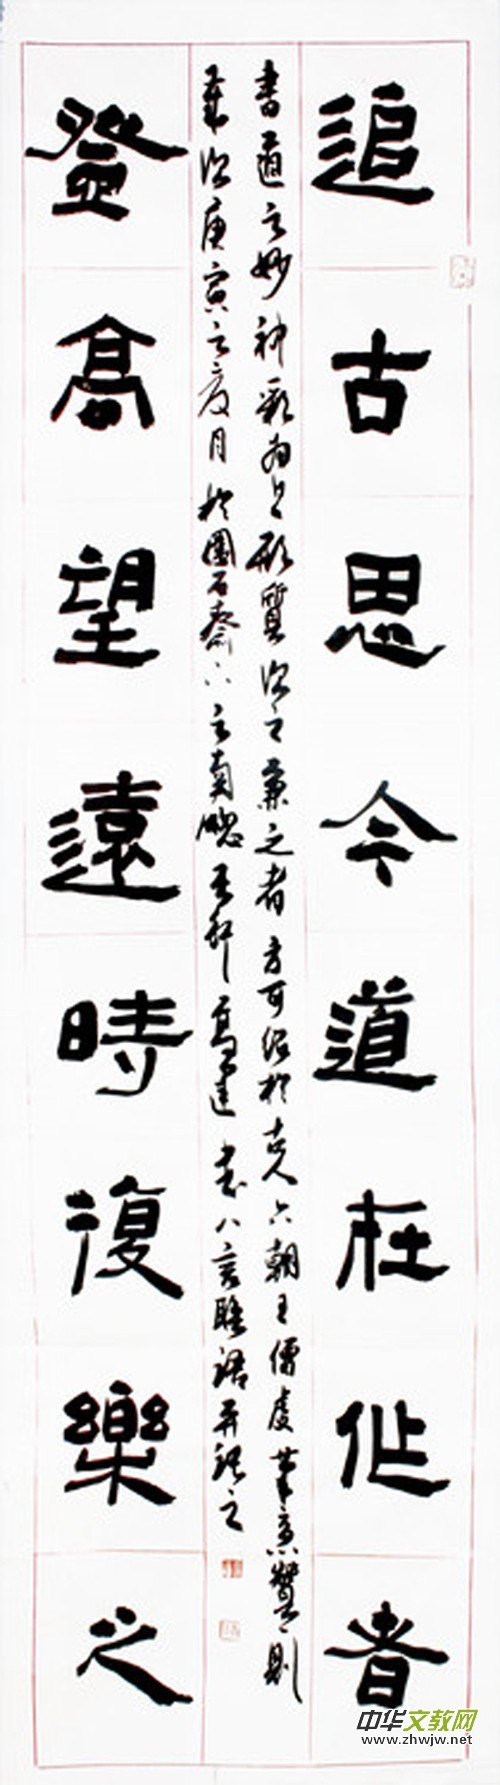 追古思今道在作者
書道之妙神彩為上形質次之兼之者方可紹於古人六朝王僧虔筆意贊則
次庚寅之夏月於園石齋之南牕書八言聯語并記之
登高望遠時復樂之
中华文教网
www.zhwjw.net